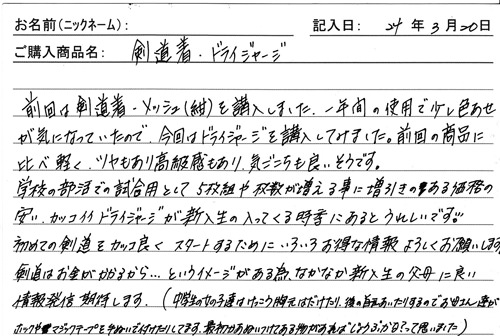 お名前(ニックネーム):
記入日: 24 年 3 月 20日
ご購入商品名: 剣道着・ドライジャージ
前回は剣道着・メッシュ(紺)を購入しました。一年間の使用で少し色あせ
が気になっていたので、今回はドライジャージを購入してみました。前回の商品に
比べ軽く、ツヤもあり高級感もあり、気ごこちも良いそうです。
学校の部活での試合用として5枚組や枚数が増える事に増引きのある価格の
安い、カッコイイドライジャージが新入生の入ってくる時季にあるとうれしいです!!
初めての剣道をカッコ良くスタートするためにいろいろお得な情報よろしくお願いします
剣道はお金がかかるから…というイメージがある為、なかなか新入生の父母に良い
情報発信期待します。(中学生の女子達はけっこう胸元はだけたり、後の
ホックやマジックテープを手ぬいで付けたりしてます。最初からぬいつけてある物があれば